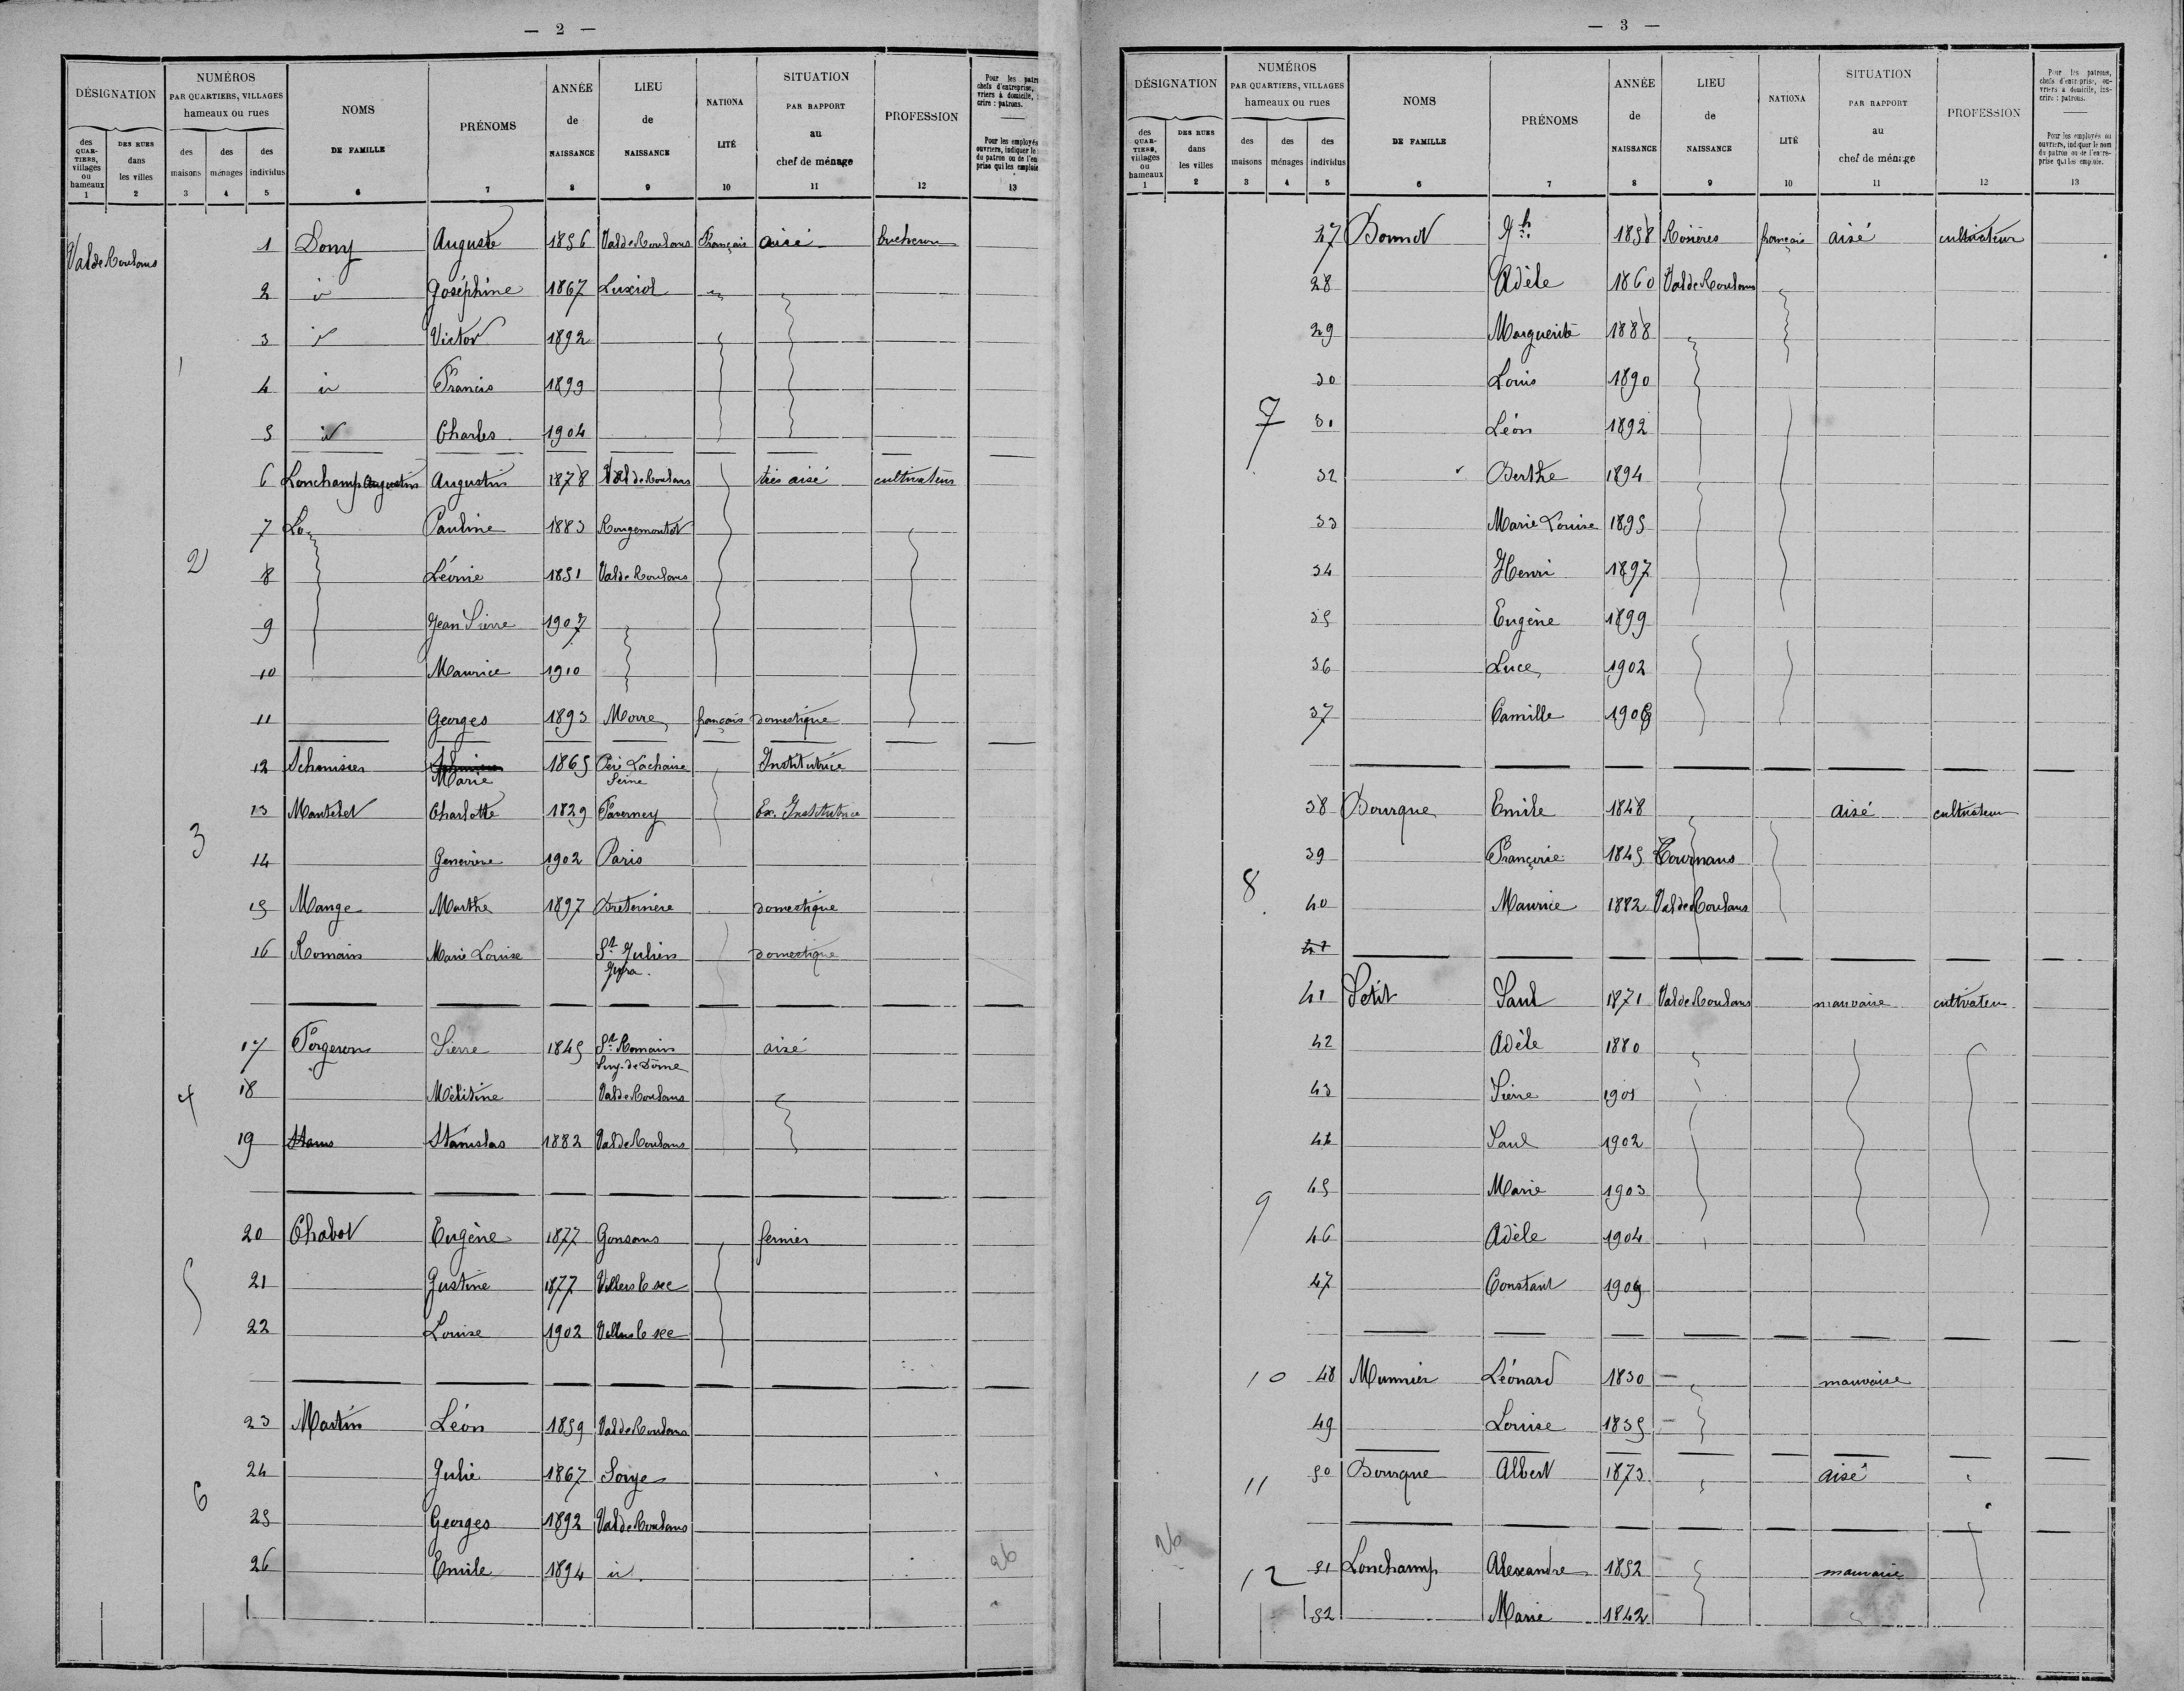 — 2 —
DÉSIGNATION
NUMÉROS
PAR QUARTIERS, VILLAGES
hameaux ou rues
NOMS
DE FAMILLE
PRÉNOMS
ANNÉE
de
NAISSANCE
LIEU
de
NAISSANCE
NATIONA
LITÉ
SITUATION
PAR RAPPORT
au
chef de ménage
PROFESSION
des QUARTIERS, villages ou hameaux
DES RUES dans les villes
des maisons
des ménages
des individus
1 2 3 4 5 6 7 8 9 10 11 12 13
Val de Roulans
1 Dony Auguste 1856 Val de Roulans Français aisé bucheron
2 id Joséphine 1867 Luxiol
3 id Victor 1892
4 id Francis 1899
5 id Charles 1904
6 Lonchamp Augustin Augustin 1878 Val de Roulans très aisé cultivateur
7 Lo Pauline 1883 Rougemontot
2
8 Léonie 1851 Val de Roulans
9 Jean Pierre 1907
10 Maurice 1910
11 Georges 1893 Morre français domestique
12 Marie 1865 Père Lachaise Seine Institutrice
13 Charlotte 1829 Faverney Ex. Institutrice
3
14 Geneviève 1902 Paris
15 Mange Marthe 1897 domestique
16 Romain Marie Louise St Julien domestique
17 Forgeron Pierre 1845 St Romain Puy-de-Dôme aisé
4
18 Mélitine Val de Roulans
19 Stanislas 1882 Val de Roulans
20 Chabot Eugène 1877 Gonsans fermier
5
21 Justine 1877 Villers le sec
22 Louise 1902 Villers le sec
23 Martin Léon 1859 Val de Roulans
24 Julie 1867 Soye
6
25 Georges 1892 Val de Roulans
26 Emile 1894 id
26
— 3 —
DÉSIGNATION
NUMÉROS
PAR QUARTIERS, VILLAGES
hameaux ou rues
NOMS
DE FAMILLE
PRÉNOMS
ANNÉE
de
NAISSANCE
LIEU
de
NAISSANCE
NATIONA
LITÉ
SITUATION
PAR RAPPORT
au
chef de ménage
PROFESSION
Pour les patrons, chefs d'entreprise, ouvriers à domicile, inscrire : patrons.
Pour les employés ou ouvriers, indiquer le nom du patron ou de l'entreprise qui les emploie.
des QUARTIERS, villages ou hameaux
DES RUES dans les villes
des maisons
des ménages
des individus
1 2 3 4 5 6 7 8 9 10 11 12 13
27 Bonnot Jh 1858 Rosières français aisé cultivateur
28 Adèle 1860 Val de Roulans
29 Marguerite 1888
30 Louis 1890
7
31 Léon 1892
32 Berthe 1894
33 Marie Louise 1895
34 Henri 1897
35 Eugène 1899
36 Luce 1902
37 Camille 1906
38 Bourque Emile 1848 aisé cultivateur
39 Françoise 1845 Tournans
8
40 Maurice 1882 Val de Roulans
41
41 Petit Paul 1871 Val de Roulans mauvaise cultivateur
42 Adèle 1880
43 Pierre 1901
44 Paul 1902
45 Marie 1903
9
46 Adèle 1904
47 Constant 1909
10 48 Munnier Léonard 1830 mauvaise
49 Louise 1835
11 50 Bourque Albert 1873 aisé
26
12 51 Lonchamp Alexandre 1852 mauvaise
52 Marie 1842